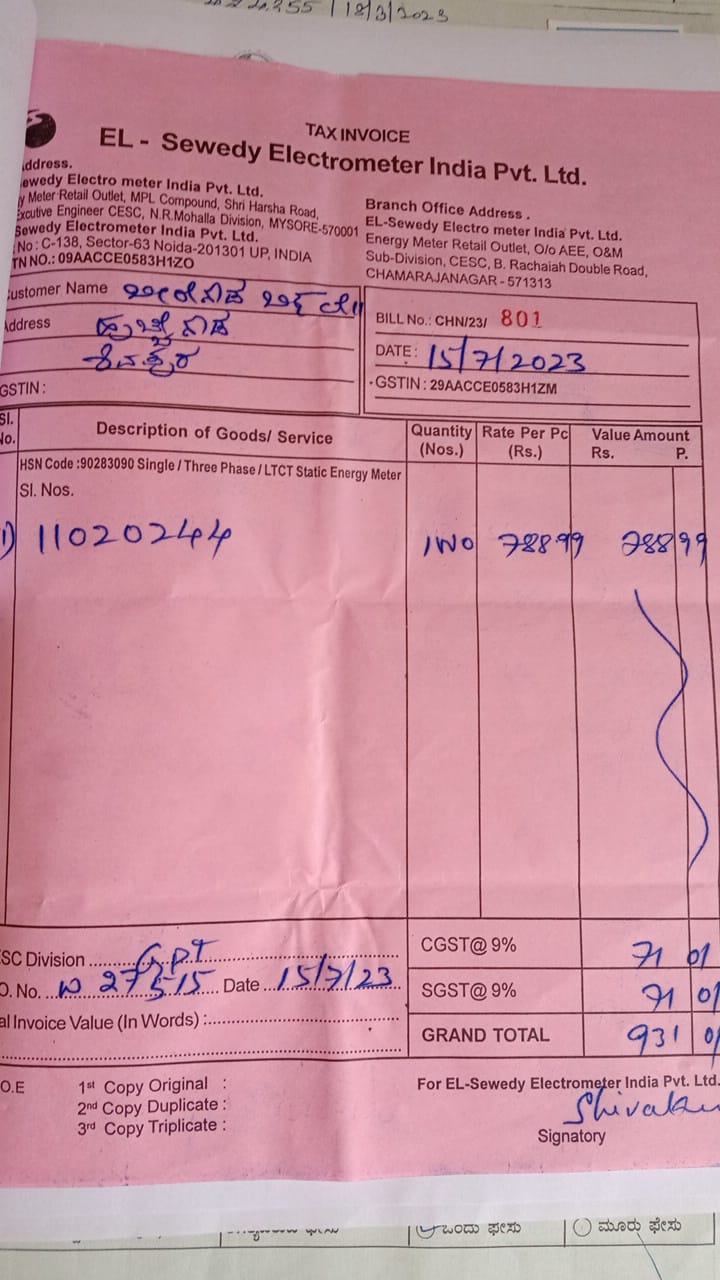 255 | 18/3/2023
TAX INVOICE
EL - Sewedy Electrometer India Pvt. Ltd.
ddress.
ewedy Electro meter India Pvt. Ltd.
y Meter Retail Outlet, MPL Compound, Shri Harsha Road,
Excutive Engineer CESC, N.R.Mohalla Division, MYSORE-570001
Sewedy Electrometer India Pvt. Ltd.
No : C-138, Sector-63 Noida-201301 UP, INDIA
TN NO.: 09AACCE0583H1ZO
Branch Office Address .
EL-Sewedy Electro meter India Pvt. Ltd.
Energy Meter Retail Outlet, O/o AEE, O&M
Sub-Division, CESC, B. Rachaiah Double Road,
CHAMARAJANAGAR - 571313
ustomer Name
Address
GSTIN :
BILL No.: CHN/23/ 801
DATE : 15/7/2023
GSTIN : 29AACCE0583H1ZM
Sl. No. Description of Goods/ Service Quantity (Nos.) Rate Per Pc (Rs.) Value Amount Rs. P.
HSN Code :90283090 Single / Three Phase / LTCT Static Energy Meter
Sl. Nos.
1) 11020244 1NO 788 99 788 99
SC Division G.P.T
O. No. Date 15/7/23
al Invoice Value (In Words) :
CGST@ 9% 71 01
SGST@ 9% 71 01
GRAND TOTAL 931 0/
O.E
1st Copy Original :
2nd Copy Duplicate :
3rd Copy Triplicate :
For EL-Sewedy Electrometer India Pvt. Ltd.
Signatory
ಒಂದು ಫೇಸು ಮೂರು ಫೇಸು